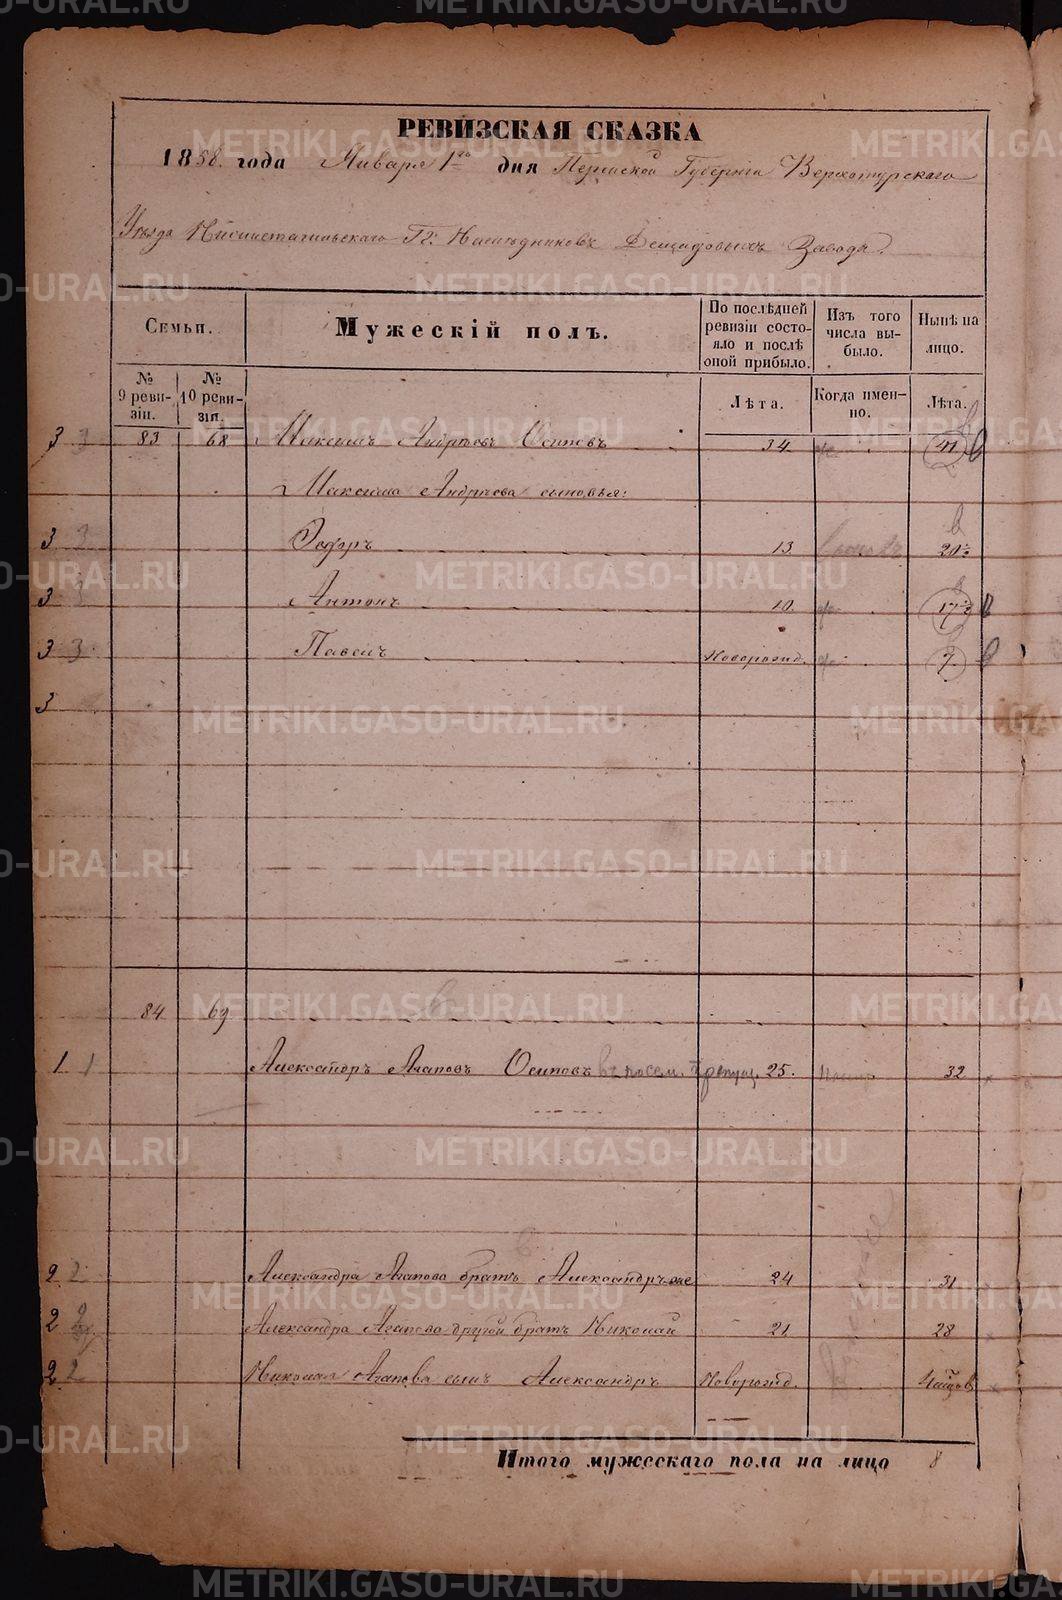 РЕВИЗСКАЯ СКАЗКА
1858 года Января 1го дня Пермской Губернiи Верхотурскаго
Уѣзда Нижнетагильскаго Гг. Наслѣдниковъ Демидовыхъ Завода.
Семьи.
Мужескiй полъ.
По послѣдней ревизiи состояло и послѣ оной прибыло.
Изъ того числа выбыло.
Нынѣ на лицо.
№ 9 ревизiи.
№ 10 ревизiя.
Лѣта.
Когда именно.
Лѣта.
3 3 83 68 Максимъ Андрѣевъ Осиповъ 34. 41
Максима Андрѣева сыновья:
3 3 13 20½
3 3 Антонъ 10. 17½
3 3 Павелъ Новорожд. 7.
3
84 69
1 1 Александръ Агаповъ Осиповъ 25. 32
2 2 Александра Агапова братъ Александръ же 24 31
2 2 Александра Агапова другой братъ Николай 21 28
2 2 Николая Агапова сынъ Александръ Новорожд.
Итого мужескаго пола на лицо 8
METRIKI.GASO-URAL.RU